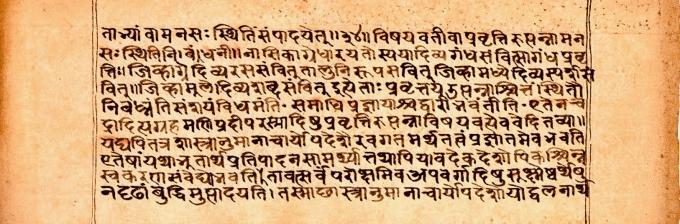 ताभ्यां वा मनसः स्थितिं संपादयेत् ॥३४॥ विषयवती वा प्रवृत्तिरुत्पन्ना मन
सः स्थितिनिबंधनी ॥ नासिकाग्रे धारयतोस्य या दिव्यगंधसंवित्सा गंधप्रवृ
त्तिः । जिह्वाग्रे दिव्यरससंवित् तालुनि रूपसंवित् जिह्वामध्ये दिव्यस्पर्शसं
वित् । जिह्वामूले दिव्यशब्दसंवित् इत्येताः प्रवृत्तय उत्पन्नाश्चित्तं स्थितौ
निबध्नंति संशयं विधमंति । समाधिप्रज्ञायां च द्वारीभवंतीति । एतेन चं
द्रादित्यग्रहमणिप्रदीपरस्मादिषु प्रवृत्तिरुत्पन्ना विषयवत्येव वेदितव्या ॥
यद्यपि शास्त्रानुमानाचार्योपदेशैरवगतमर्थतत्वं भवति
एतेषां यथाभूतार्थप्रतिपादनसामर्थ्यात् तथापि यावदेकदेशोपि कश्चिन्न
स्वकरणसंवेद्यो भवति । तावत्सर्वं परोक्षमिव अपवर्गादिषु सूक्ष्मेष्वर्थेषु
न दृढां बुद्धिमुत्पादयति । तस्माच्छास्त्रानुमानाचार्योपदेशोपोद्बलनार्थ